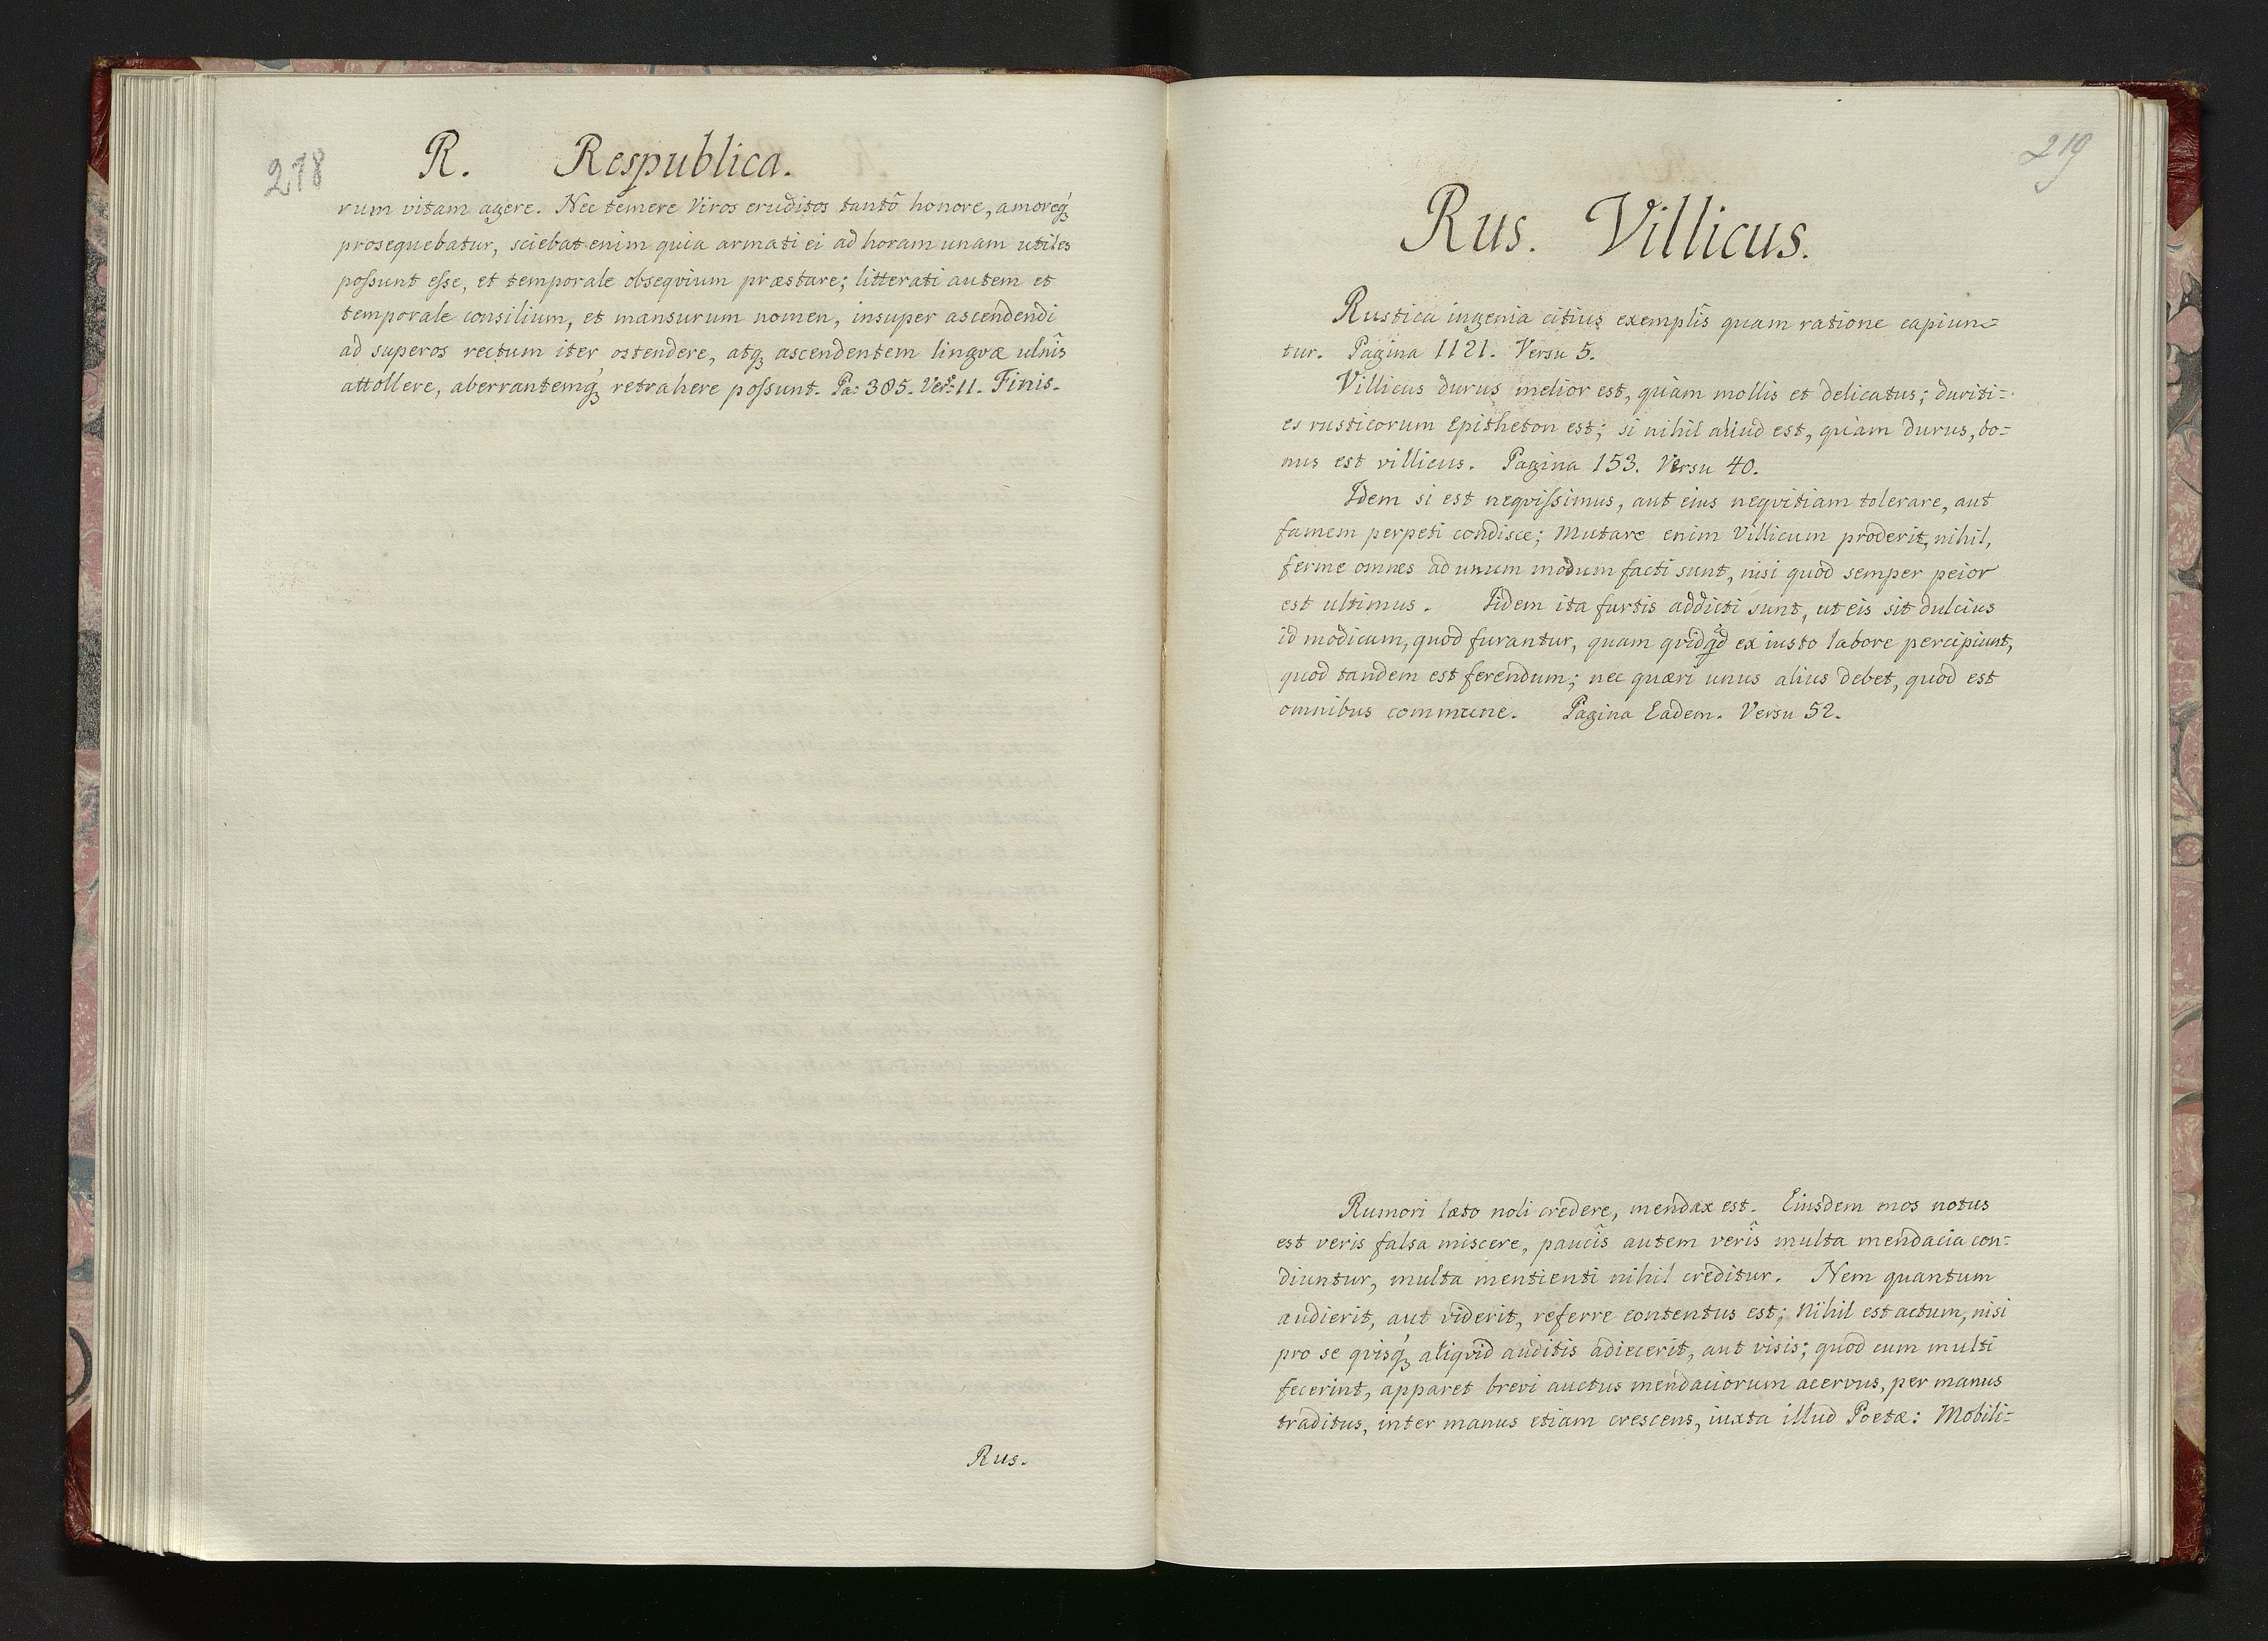 218
R. Respublica.
rum vitam agere. Nec temere Viros eruditos tantô honore, amoreq́ꝫ
prosequebatur, sciebat enim quia armati ei ad horam unam utiles
poſsunt eſse, et temporale obseqvium præstare; litterati autem et
temporale consilium, et mansurum nomen, insuper ascendendi
ad superos rectum iter ostendere, atqꝫ ascendentem lingvæ ulnis
attollere, aberrantemq́ꝫ retrahere poſsunt. Pa: 385. Verˢ: 11. Finis.
Rus.
219
Rus. Villicus.
Rustica ingenia citius exemplis quam ratione capiun=
tur. Pagina 1121. Versu 5.
Villicus durus melior est, quàm mollis et delicatus; duriti=
es rusticorum Epitheton est; si nihil aliud est, quàm durus, bo=
nus est villicus. Pagina 153. Versu 40.
Idem si est neqviſsimus, aut eius neqvitiam tolerare, aut
famem perpeti condisce; Mutare enim Villicum proderit, nihil,
ferme omnes ad unum modum facti sunt, nisi quod semper peior
est ultimus. Iidem ita furtis addicti sunt, ut eis sit dulcius
id modicum, quod furantur, quam qvidqͥd ex iusto labore percipiunt,
quod tandem est ferendum; nec quæri unus alius debet, quod est
omnibus commune. Pagina Eadem. Versu 52.
Rumori læto noli credere, mendax est. Eiusdem mos notus
est veris falsa miscere, paucîs autem verîs multa mendacia con=
diuntur, multa mentienti nihil creditur. Nem quantum
audierit, aut viderit, referre contentus est; Nihil est actum, nisi
pro se qvisq́ꝫ aliqvid auditis adiecerit, aut visis; quod cum multi
fecerint, apparet brevi auctus mendaciorum acervus, per manus
traditus, inter manus etiam crescens, iuxta illud Poetæ: Mobili=